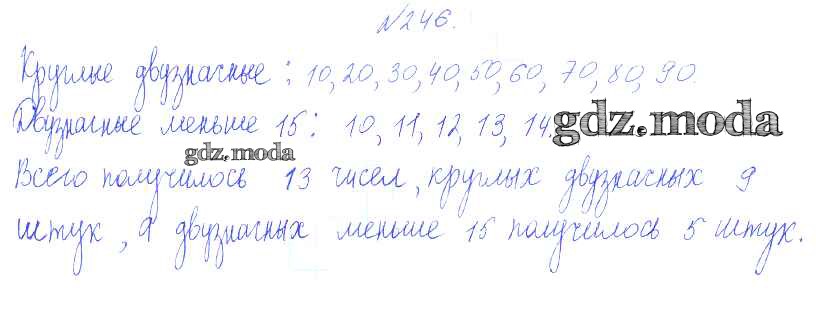 №246.
Круглые двузначные: 10, 20, 30, 40, 50, 60, 70, 80, 90.
Двузначные меньше 15: 10, 11, 12, 13, 14.
gdz.moda
gdz.moda
Всего получилось 13 чисел, круглых двузначных 9
штук, а двузначных меньше 15 получилось 5 штук.